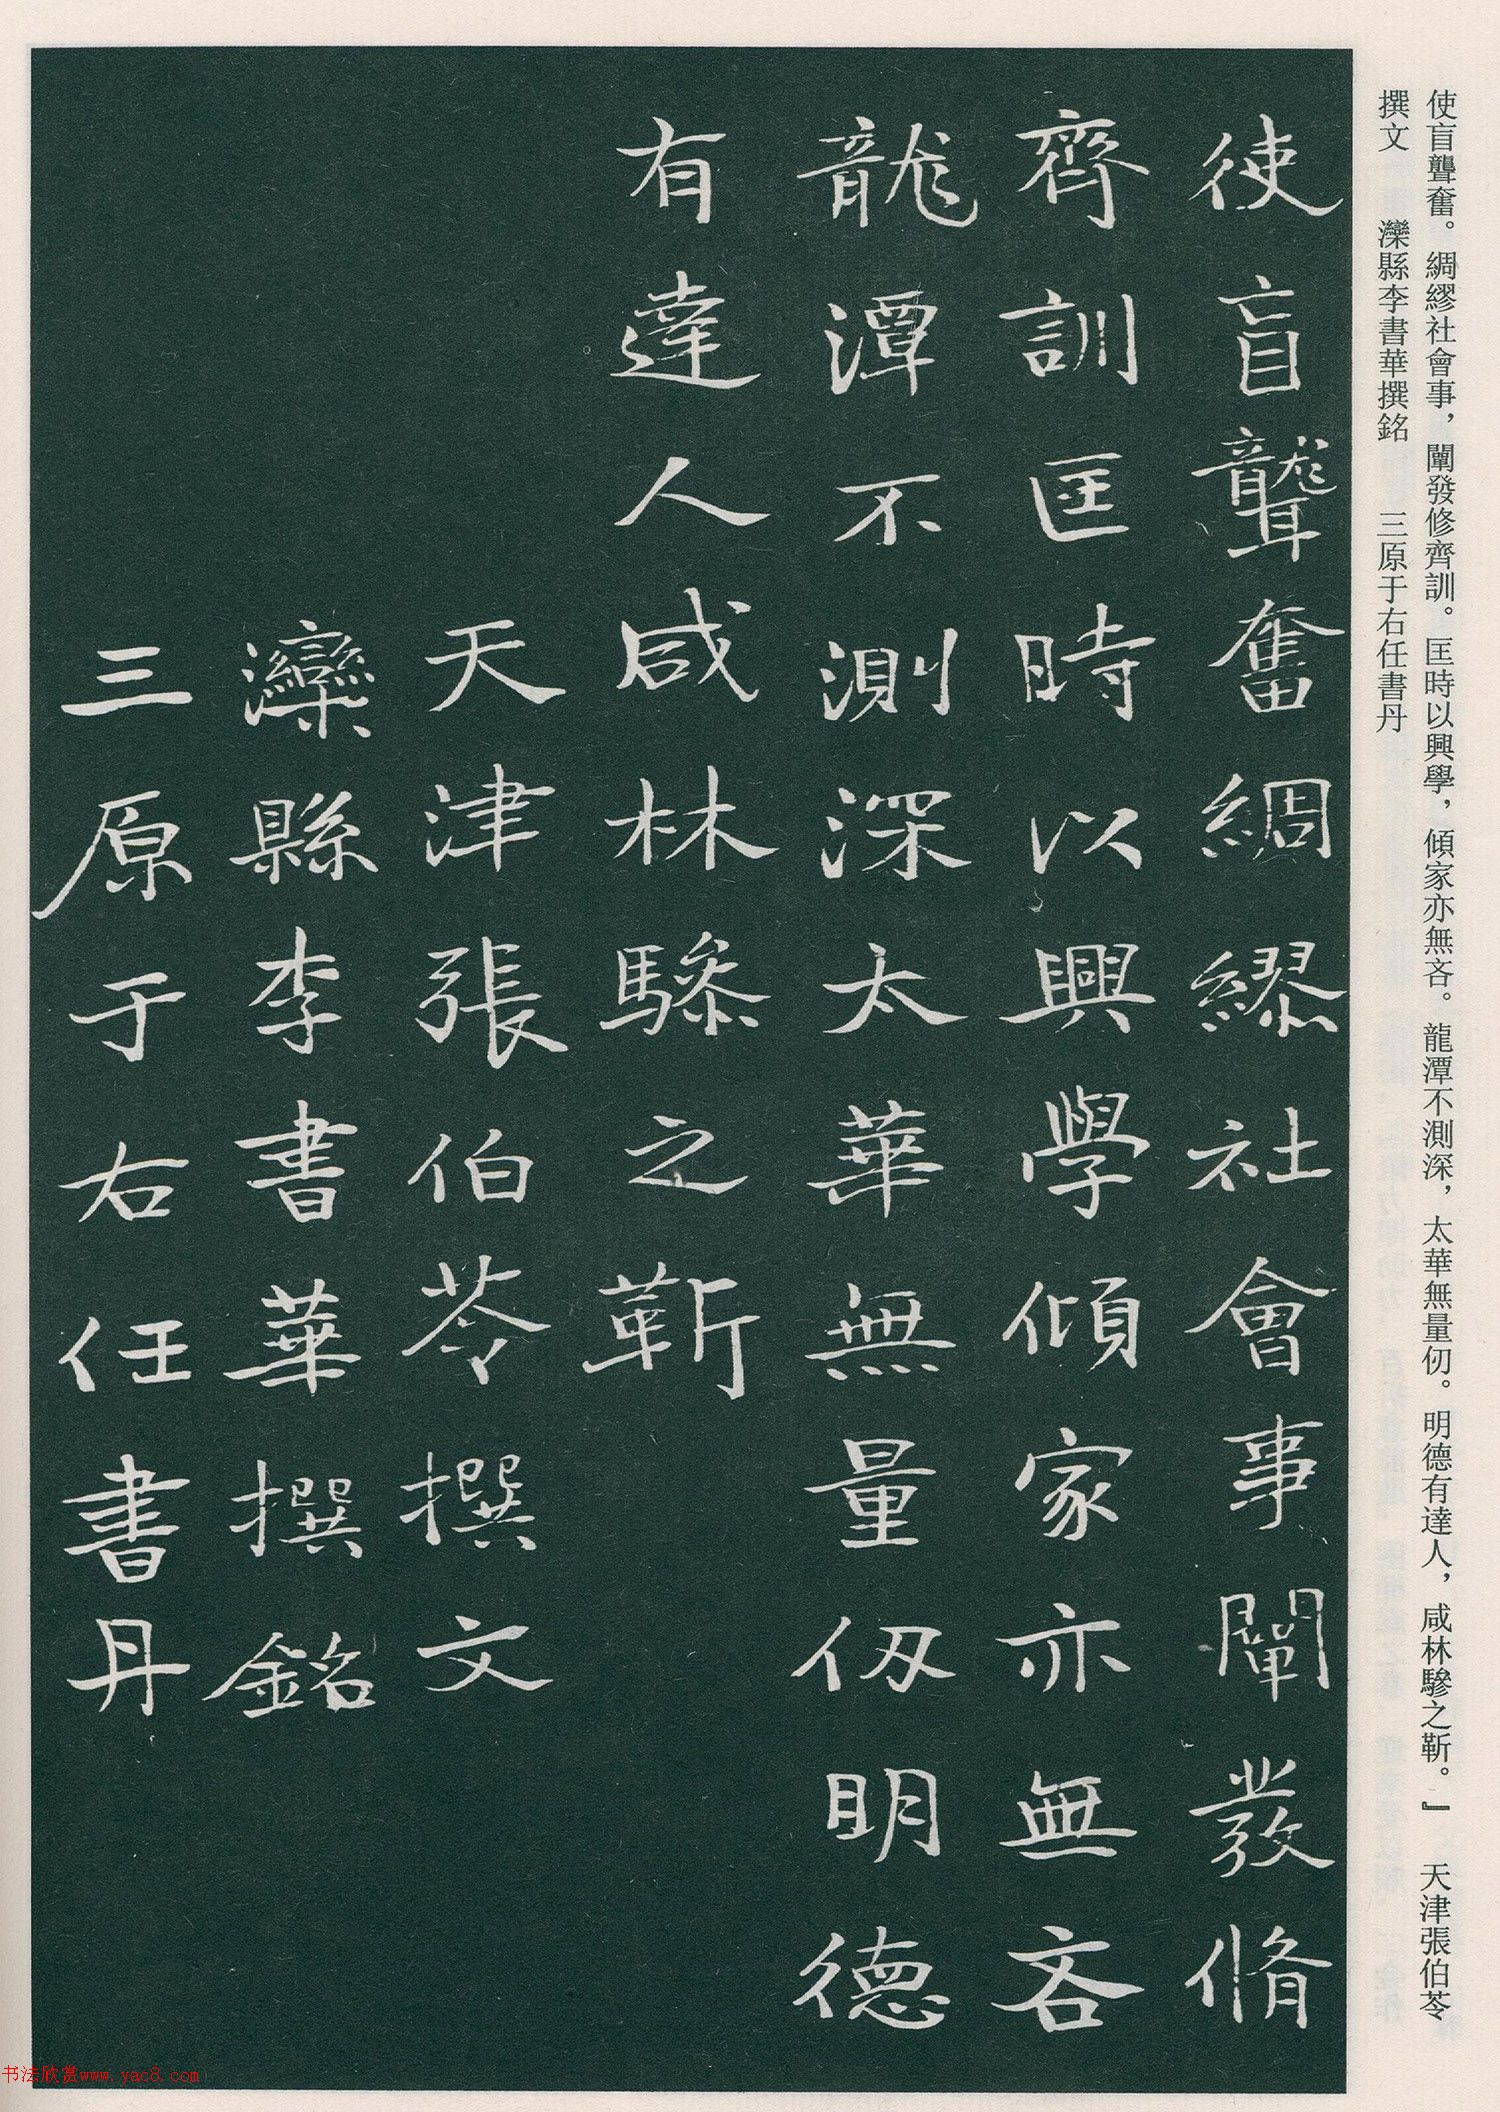 使盲聾奮。綢繆社會事，闡發修齊訓。匡時以興學，傾家亦無吝。龍潭不測深，太華無量仞。明德有達人，咸林驂之靳。』　天津張伯苓
撰文　灤縣李書華撰銘　三原于右任書丹
使盲聾奮綢繆社會事闡發脩
齊訓匡時以興學傾家亦無吝
龍潭不測深太華無量仭明德
有達人咸林驂之靳
天津張伯苓撰文
灤縣李書華撰銘
三原于右任書丹
书法欣赏www.yac8.com